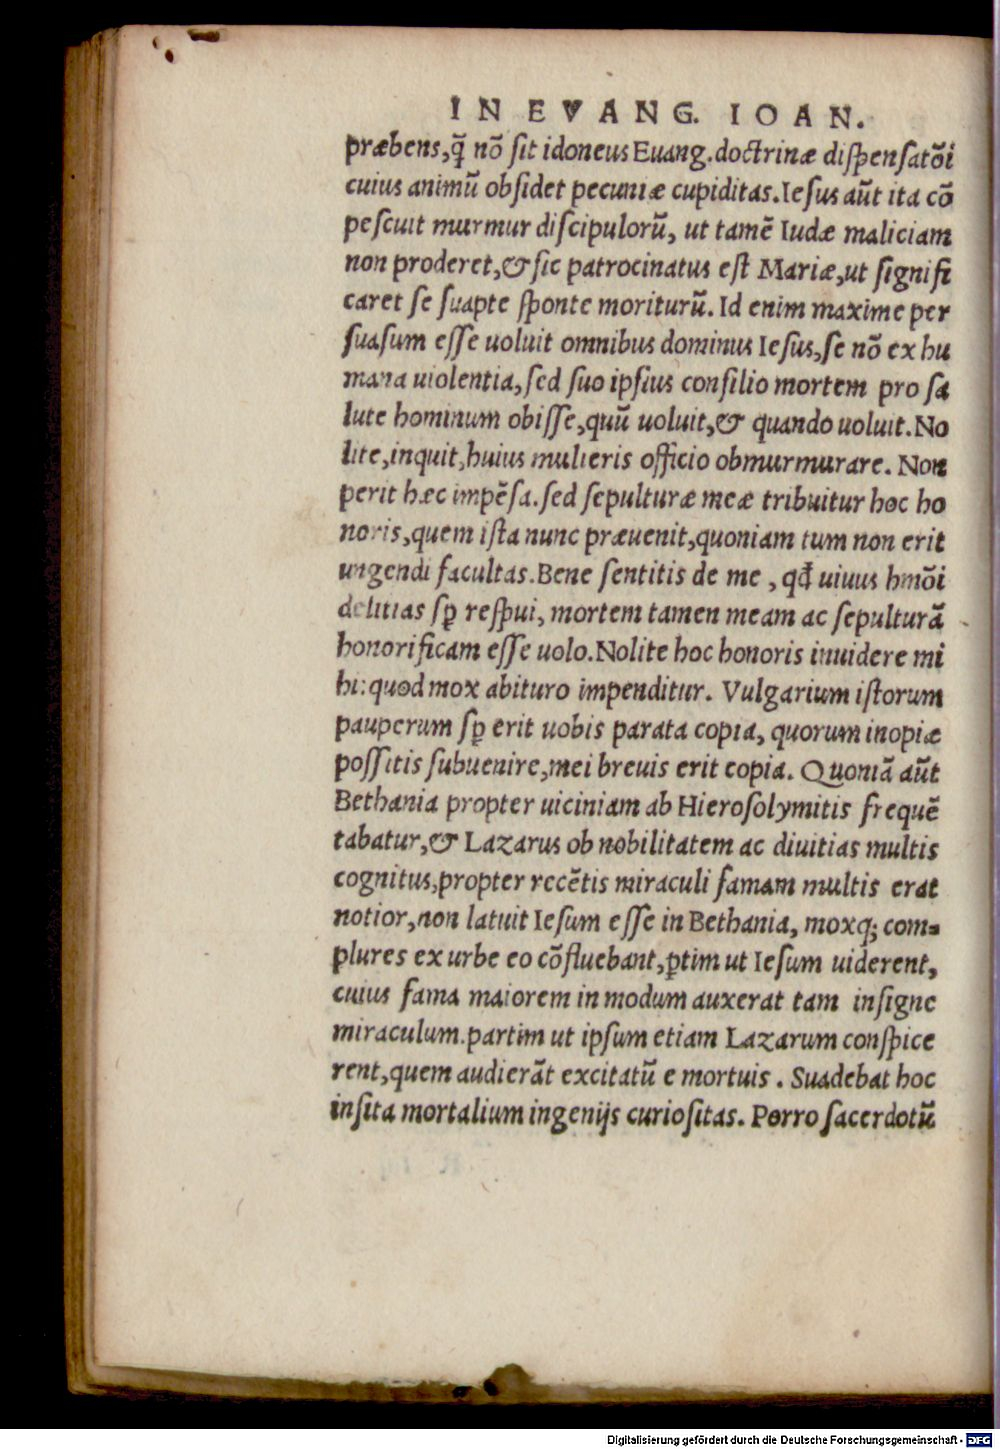 IN EVANG. IOAN.
præbens,q̃ nō ſit idoneus Euang.doctrinæ diſpenſatõi
cuius animũ obſidet pecuniæ cupiditas.Ieſus aũt ita cō
peſcuit murmur diſcipulorũ, ut tamē Iudæ maliciam
non proderet,& ſic patrocinatus eſt Mariæ,ut ſignifi
caret ſe ſuapte ſponte moriturũ. Id enim maxime per
ſuaſum eſſe uoluit omnibus dominus Ieſus,ſe nō ex hu
mana uiolentia,ſed ſuo ipſius conſilio mortem pro ſa
lute hominum obiſſe,quũ uoluit,& quando uoluit.No
lite,inquit,huius mulieris officio obmurmurare. Non
perit hæc impēſa.ſed ſepulturæ meæ tribuitur hoc ho
noris,quem iſta nunc præuenit,quoniam tum non erit
ungendi facultas.Bene ſentitis de me , qđ uiuus hmõi
delitias ſꝑ reſpui, mortem tamen meam ac ſepulturã
honorificam eſſe uolo.Nolite hoc honoris inuidere mi
hi:quod mox abituro impenditur. Vulgarium iſtorum
pauperum ſꝑ erit uobis parata copia, quorum inopiæ
poſſitis ſubuenire,mei breuis erit copia. Quoniã aũt
Bethania propter uiciniam ab Hieroſolymitis frequē
tabatur,& Lazarus ob nobilitatem ac diuitias multis
cognitus,propter recētis miraculi famam multis erat
notior,non latuit Ieſum eſſe in Bethania, moxq; com-
plures ex urbe eo cōfluebant,ꝑtim ut Ieſum uiderent,
cuius fama maiorem in modum auxerat tam inſigne
miraculum.partim ut ipſum etiam Lazarum conſpice
rent,quem audierãt excitatũ e mortuis . Suadebat hoc
inſita mortalium ingenijs curioſitas. Porro ſacerdotũ
Digitalisierung gefördert durch die Deutsche Forschungsgemeinschaft - DFG